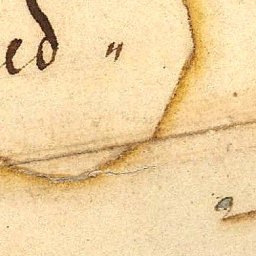 ed "